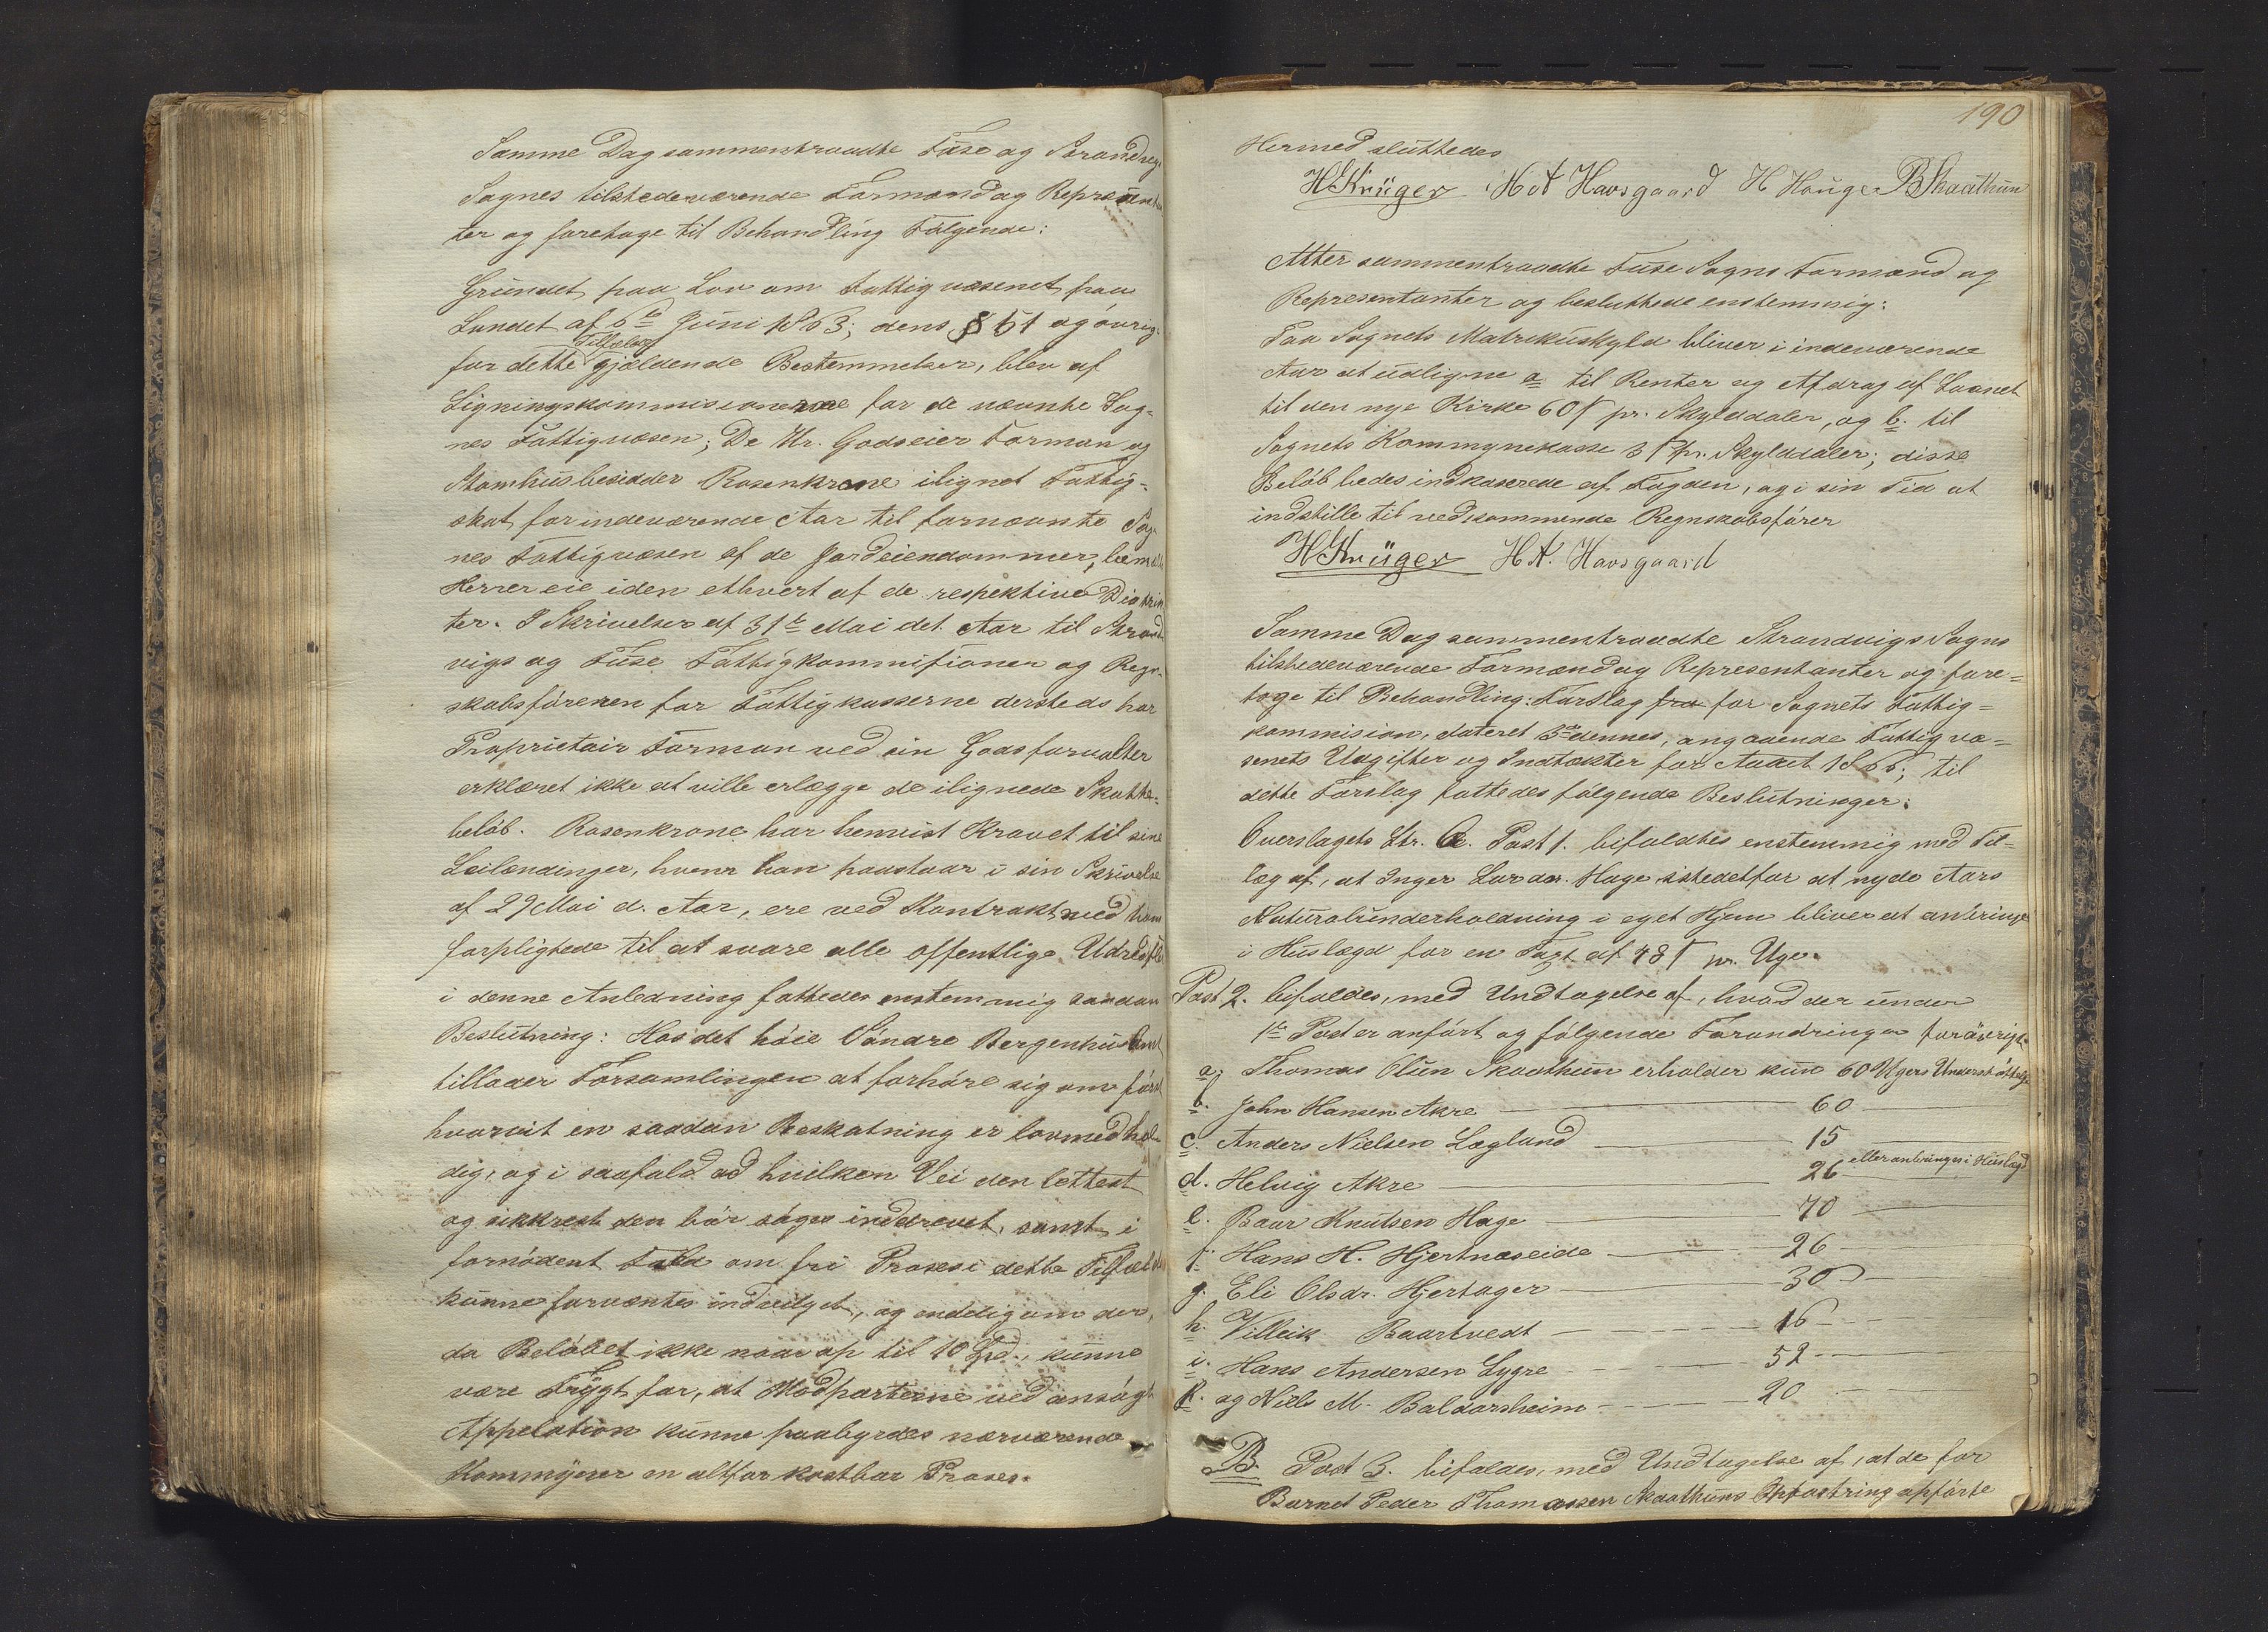 Samme Dag sammentraadte Fuse og Strandvigs
Sognes tilstedeværende Formænd og Represæntan
ter og foretoge til Behandling Følgende:
Grundet paa Lov om Fattigvæsenet paa
Landet af 6te Juni 1863; dens § 51 og øvrig.
for dette Tilfælde gjældende Bestemmelser, blev af
Ligningskommisionerne for de nævnte Sog-
nes Fattigvæsen; De Hr. Godseier Forman og
Stamhusbesidder Rosenkrone ilignet Fattig-
skat for indeværende Aar til fornævnte Sog-
nes Fattigvæsen af de Jordeiendommer, bemeldte
Herrer eie iden ethvert af de respektive Distrik
ter. I Skrivelser af 31te Mai det Aar til Strand
vigs og Fuse Fattigkommisioner og Regn-
skabsføreren for Fattigkasserne dersteds har
Proprietair Forman ved sin Godsforvalter
erklæret ikke at ville erlægge de ilignede Skatte-
beløb. Rosenkrone har henvist Kravet til sine
Leilændinger, hvem han paastaar i sin Skrivelse
af 29 Mai d. Aar, ere ved Kontrakt med ham
forpligtede til at svare alle offentlige Udredsler
i denne Anledning fattedes enstemmig saadan
Beslutning: Hos det høie Søndre Bergenhus Amt
tillader Forsamlingen at forhøre sig om først
hvorvit en saadan Beskatning er lovmedhol-
dig, og i saafald ad hvilken Vei den lettest
og sikkrest den bør søges inddrevet, samt i
fornødent Fald om fri Proses i dette Tilfælde
kunne forventes indvilget, og endelig om der,
da Beløbet ikke naar op til 10 Spd., kunne
være Frygt for, at Modparterne ved ansøgt
Appelation kunne paabyrdes nærværende
Kommyner en altfor kostbar Proses.
190
Hermed sluttedes
H Krüger H A Havsgaard H Hauge B Skaathun
Atter sammentraadte Fuse Sogns Formænd og
Representanter og besluttede enstemmig:
Paa Sognets Matrikuskyld bliver i indeværende
Aar at udligne a til Renter og Afdrag af Laanet
til den nye Kirke 60 ſ pr. Skylddaler, og b. til
Sognets Kommynekasse 3 ſ pr. Skylddaler; disse
Beløb bedes indkaserede af Fogden, og i sin Tid at
indstille til vedkommende Regnskabsfører
H Krüger H A. Havsgaard
Samme Dag sammentraadte Strandvigs Sogns
tilstedeværende Formænd og Representanter og fore-
toge til Behandling: Forslag fra for Sognets Fattig-
kommision, dateret 3de dennes, angaaende Fattigvæ-
senets Udgifter og Indtækter for Aaret 1866; til
dette Forslag fattedes følgende Beslutninger:
Overslagets Ltr. A. Post 1. bifaldtes enstemmig med Til-
læg af, at Inger Larsdr. Hage istedetfor at nyde Aars
Naturalunderholdning i eget Hjem bliver at anbringe
i Huslægd for en Taxt af 48 ſ pr. Uge.
Post 2. bifaldes, med Undtagelse af, hvad der under
1te Post er anført og følgende Forandringer forøvrigt.
a. Thomas Olsen Skaathun erholder kun 60 Ugers Understøttelse
b. John Hansen Akre 60
c. Anders Nielsen Lægland 15
d. Helvig Akre 26 eller anbringes i Huslægd
e. Baar Knutsen Hage 70
f. Hans H. Hjertnæseide 26
g. Eli Olsdr. Hjertager 30
h. Villeik Baartvedt 16
i. Hans Andersen Lygre 52
k. og Niels M. Baldersheim 20
B. Post 3. bifaldes, med Undtagelse af, at de for
Barnet Peder Thomassen Skaathuns Opfostring opførte